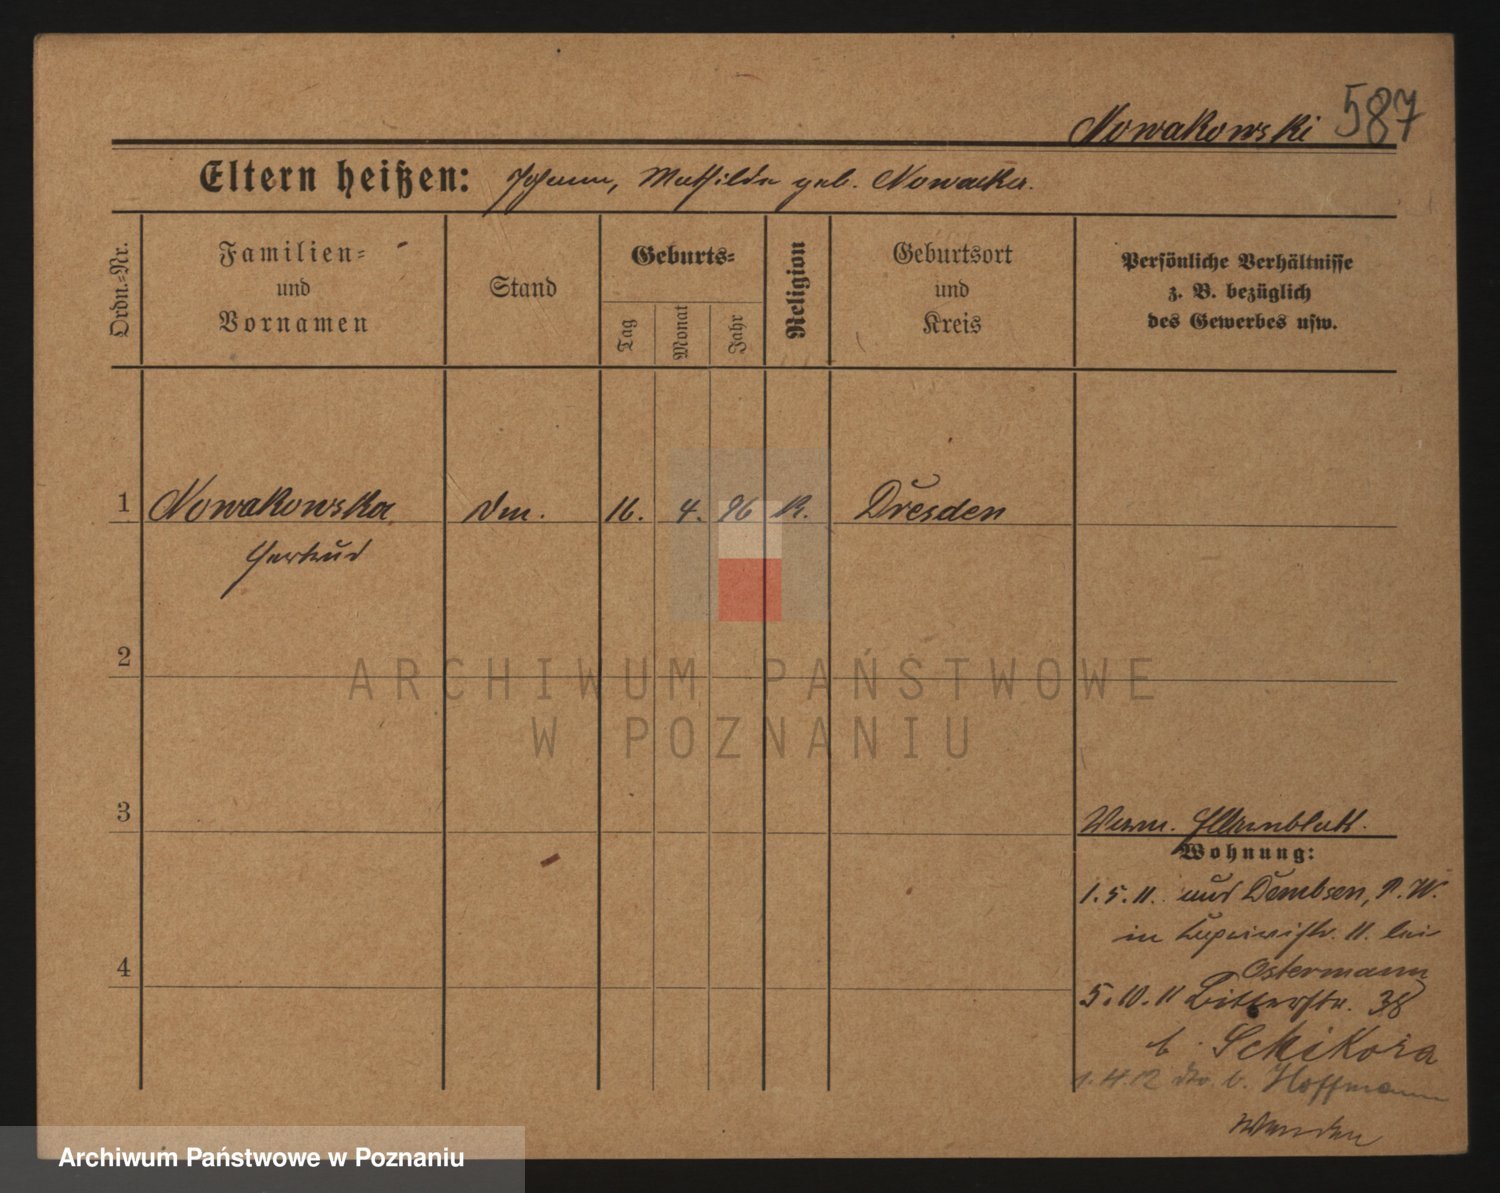 Nowakowski 587
Eltern heißen: Johann, Mathilde geb. Nowacka.
Ordn.-Nr.
Familien-
und
Vornamen
Stand
Geburts-
Tag
Monat
Jahr
Religion
Geburtsort
und
Kreis
Persönliche Verhältnisse
z. B. bezüglich
des Gewerbes usw.
1 Nowakowska 16. 4. 96 K. Dresden
Gertrud
2
3
4
Verm. Elternblatt.
Wohnung:
1.5.11. aus Dembsen, P. W.
in 11. bei
Ostermann
5.10.11 Bitterstr. 38
b. Schikora
1.4.12 dto. b. Hoffmann
Wenden
ARCHIWUM PAŃSTWOWE
W POZNANIU
Archiwum Państwowe w Poznaniu